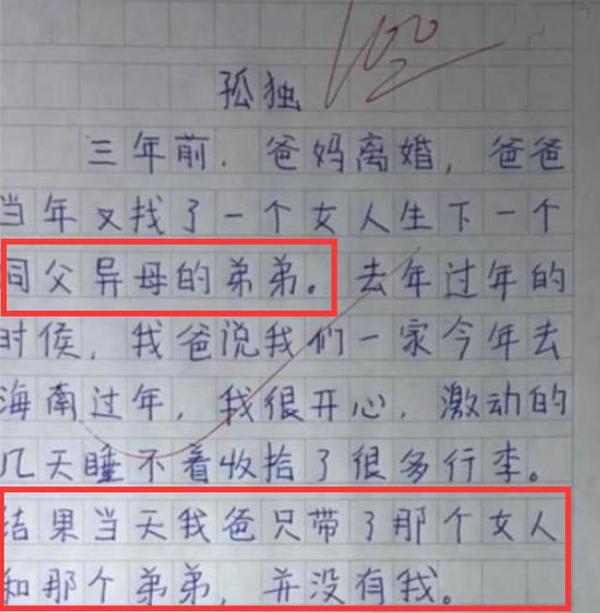 100
孤独
三年前，爸妈离婚，爸爸
当年又找了一个女人生下一个
同父异母的弟弟。去年过年的
时侯，我爸说我们一家今年去
海南过年，我很开心，激动的
几天睡不着收拾了很多行李。
结果当天我爸只带了那个女人
和那个弟弟，并没有我。